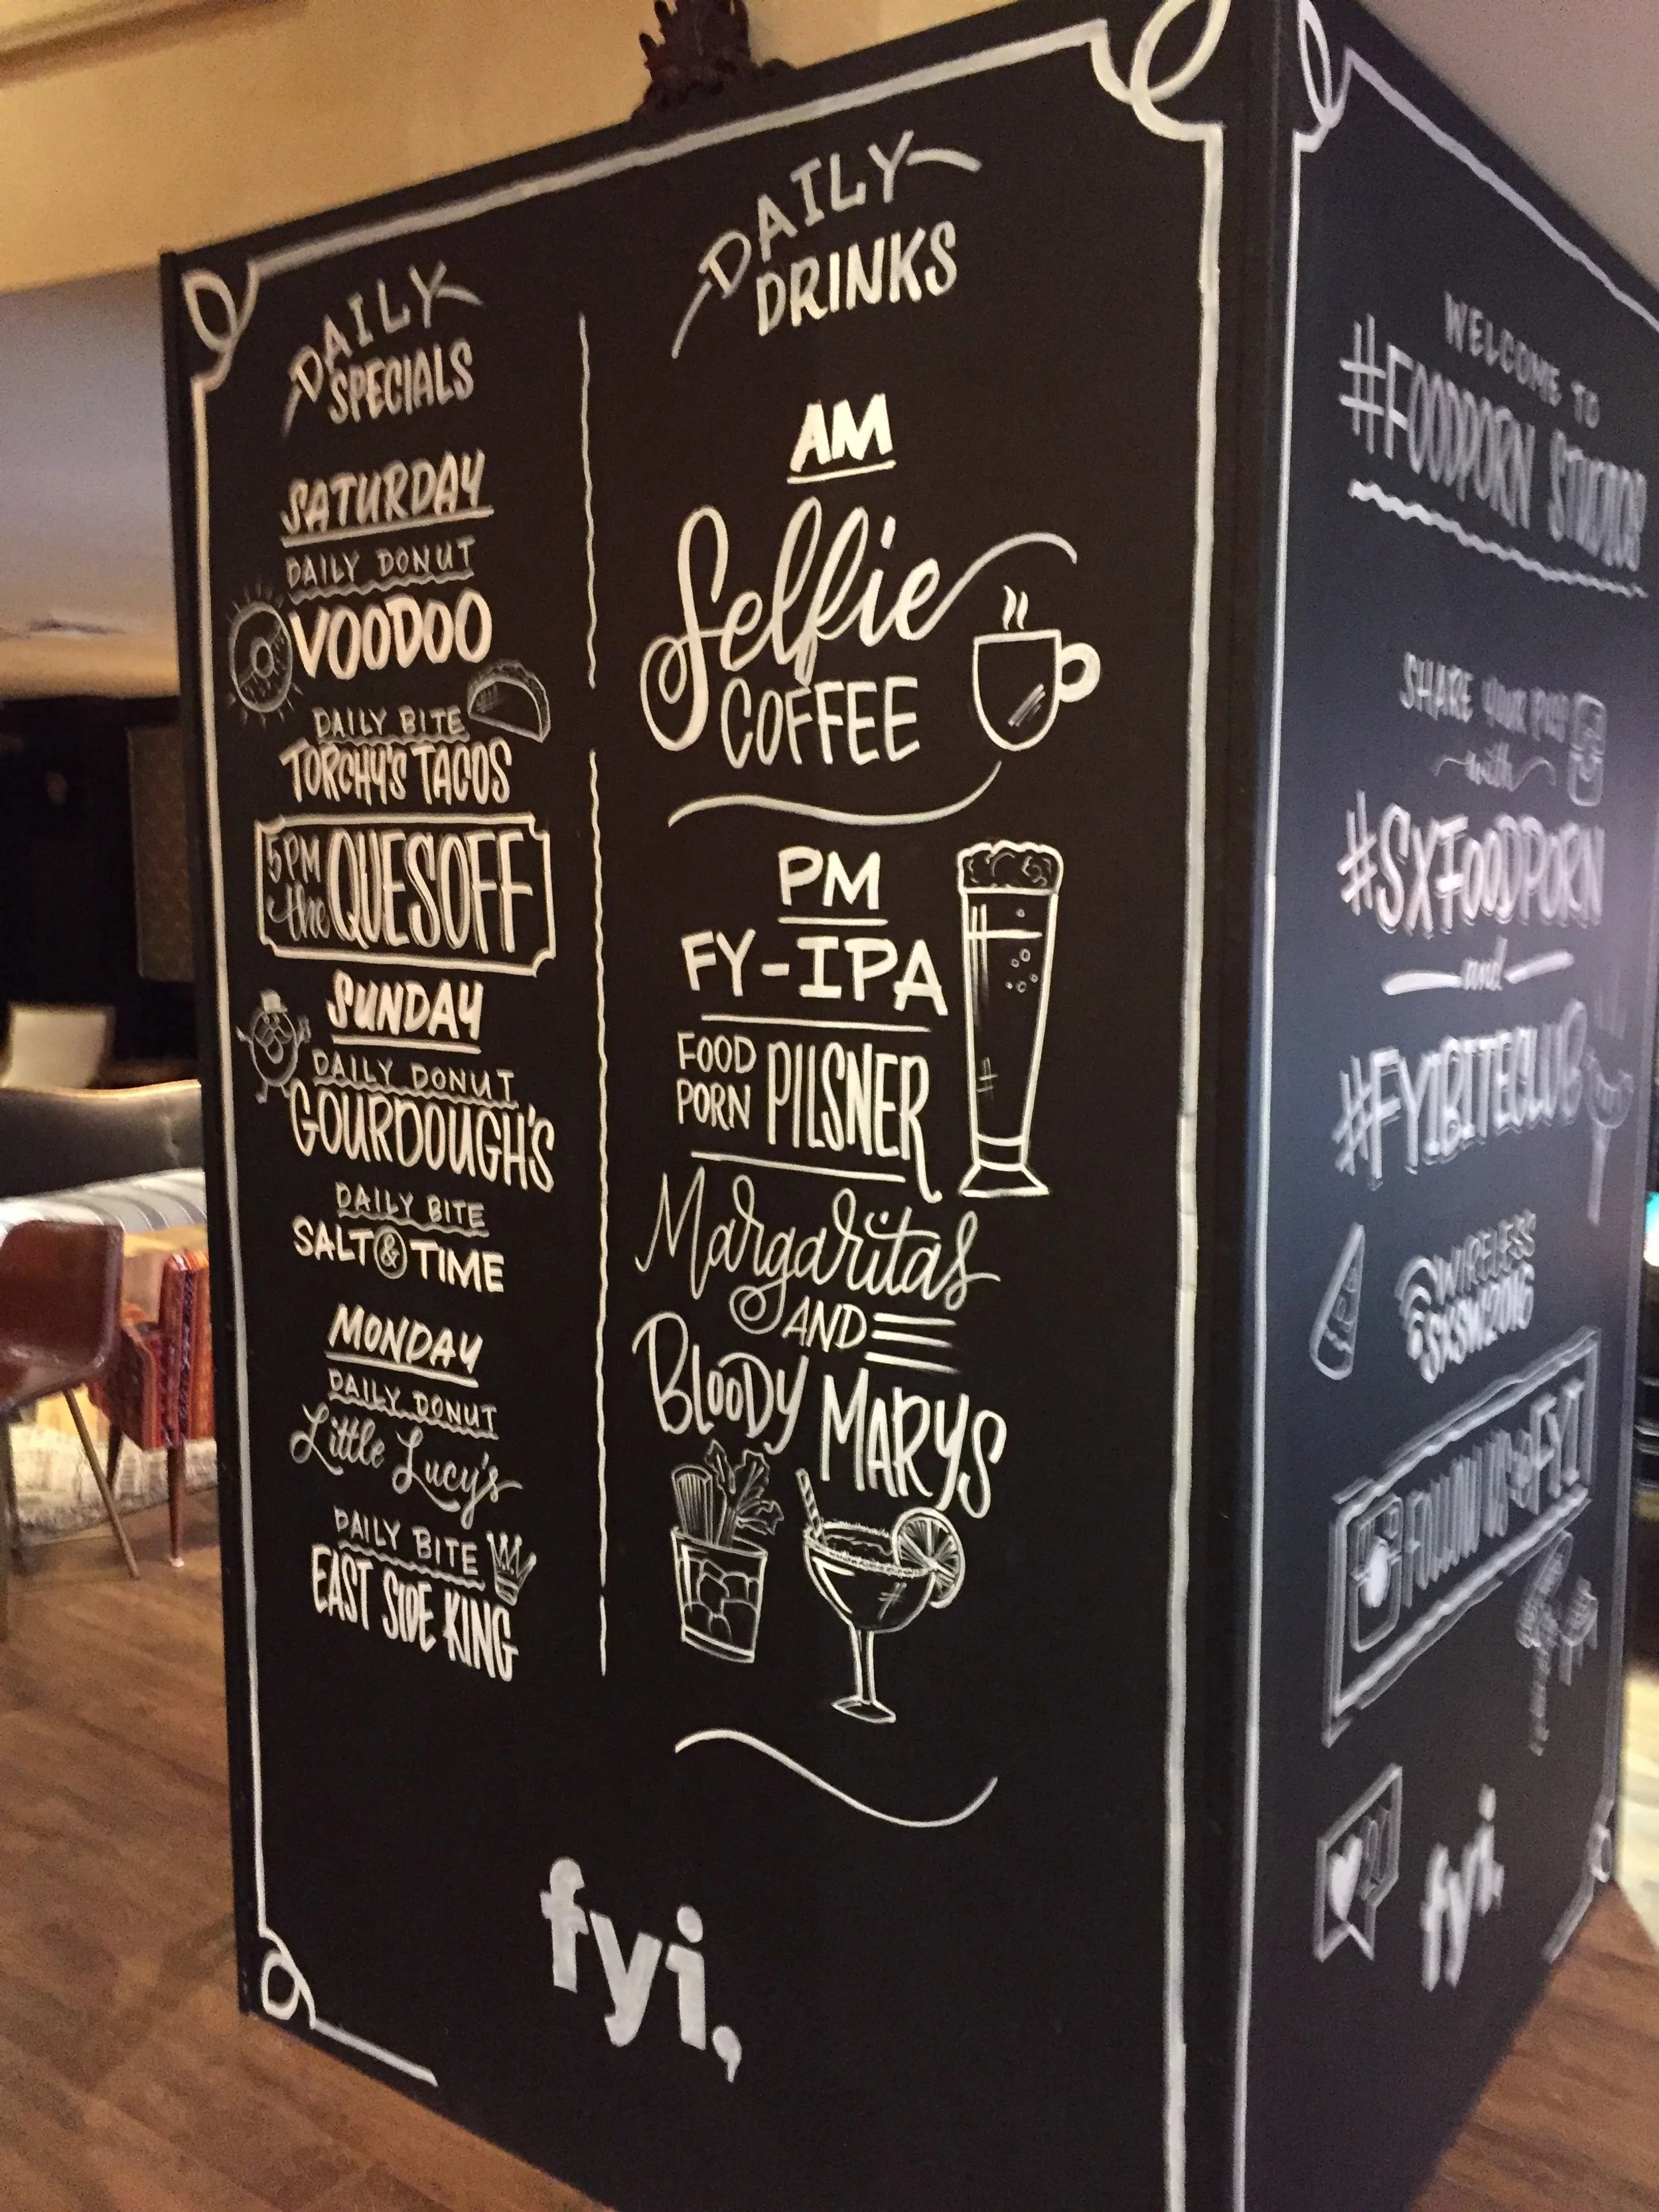 DAILY
SPECIALS
SATURDAY
DAILY DONUT
VOODOO
DAILY BITE
TORCHY'S TACOS
5PM
the QUESOFF
SUNDAY
DAILY DONUT
GOURDOUGH'S
DAILY BITE
SALT & TIME
MONDAY
DAILY DONUT
Little Lucy's
DAILY BITE
EAST SIDE KING
DAILY
DRINKS
AM
Selfie
COFFEE
PM
FY-IPA
FOOD
PORN PILSNER
Margaritas
AND
BLOODY MARYS
fyi,
WELCOME TO
#FOODPORN STUDIOS
SHARE YOUR PICS
with
#SXFOODPORN
and
#FYIBITECLUB
WIRELESS
SXSW2016
FOLLOW US @FYI
fyi,